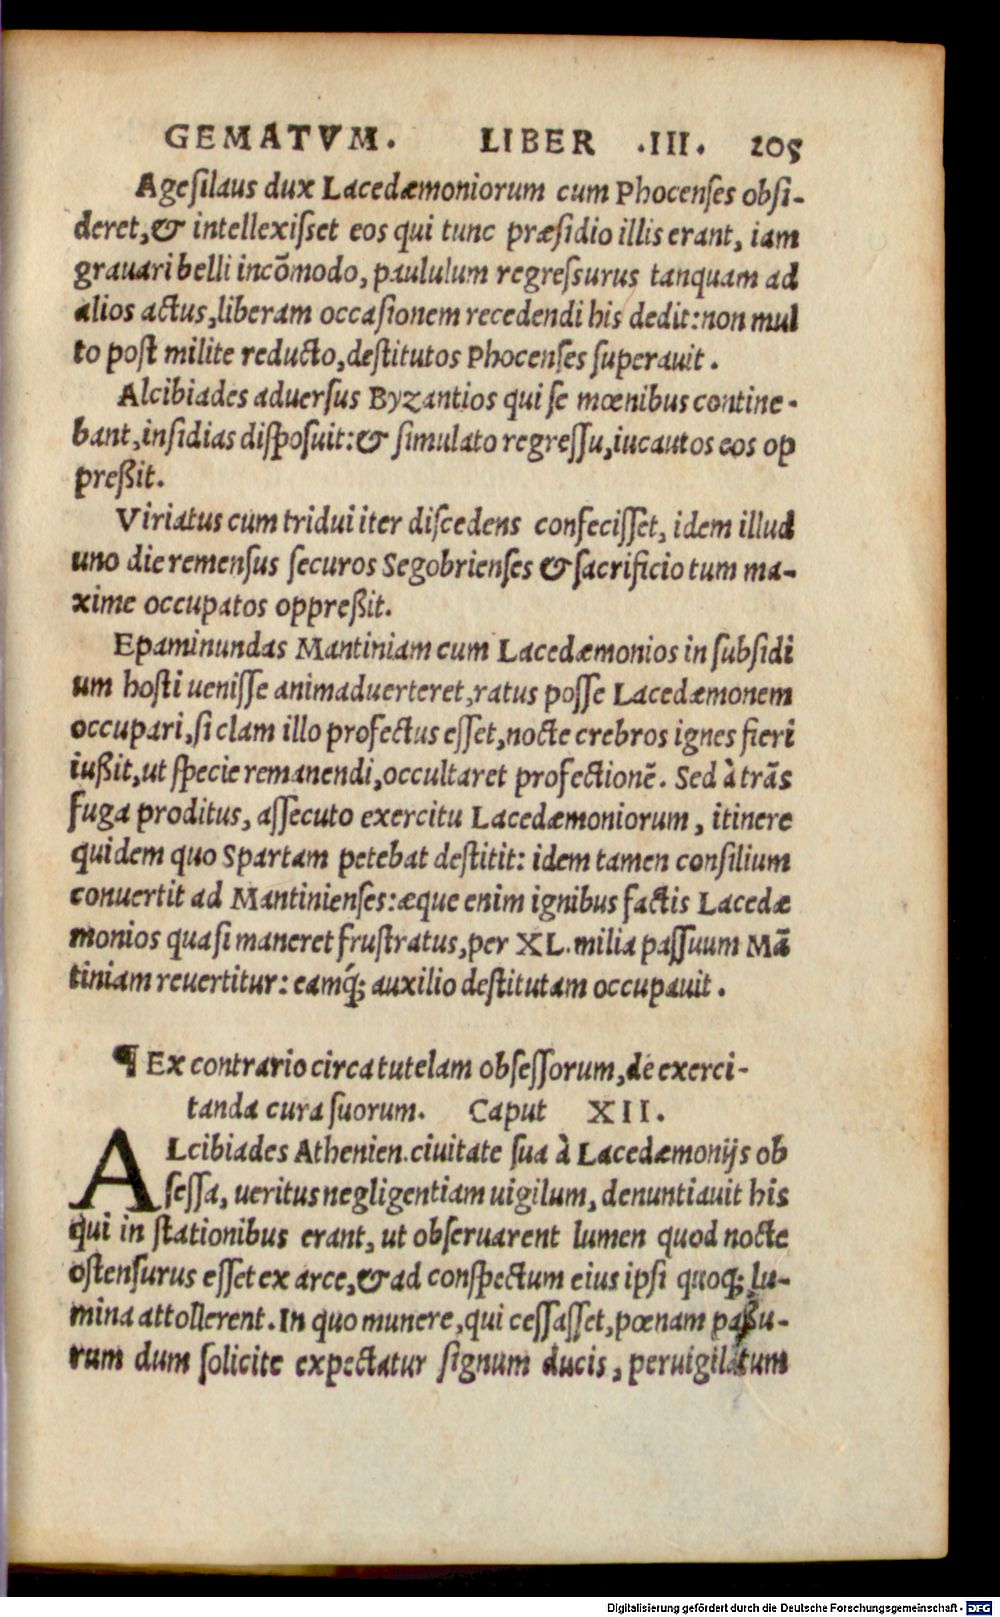 GEMATVM. LIBER .III. 205
Ageſilaus dux Lacedæmoniorum cum Phocenſes obſi-
deret,& intellexiſſet eos qui tunc præſidio illis erant, iam
grauari belli incõmodo, paululum regreſſurus tanquam ad
alios actus,liberam occaſionem recedendi his dedit:non mul
to poſt milite reducto,deſtitutos Phocenſes ſuperauit.
Alcibiades aduerſus Byzantios qui ſe mœnibus contine-
bant,inſidias diſpoſuit:& ſimulato regreſſu,iucautos eos op
preßit.
Viriatus cum tridui iter diſcedens confeciſſet, idem illud
uno die remenſus ſecuros Segobrienſes & ſacrificio tum ma-
xime occupatos oppreßit.
Epaminundas Mantiniam cum Lacedæmonios in ſubſidi
um hoſti ueniſſe animaduerteret,ratus poſſe Lacedæmonem
occupari,ſi clam illo profectus eſſet,nocte crebros ignes fieri
iußit,ut ſpecie remanendi,occultaret profectionẽ. Sed à trãs
fuga proditus, aſſecuto exercitu Lacedæmoniorum, itinere
quidem quo Spartam petebat deſtitit: idem tamen conſilium
conuertit ad Mantinienſes:æque enim ignibus factis Lacedæ
monios quaſi maneret fruſtratus,per XL.milia paſſuum Mã
tiniam reuertitur: eamq́; auxilio deſtitutam occupauit.
¶ Ex contrario circa tutelam obſeſſorum,de exerci-
tanda cura ſuorum. Caput XII.
ALcibiades Athenien.ciuitate ſua à Lacedæmonijs ob
ſeſſa, ueritus negligentiam uigilum, denuntiauit his
qui in ſtationibus erant, ut obſeruarent lumen quod nocte
oſtenſurus eſſet ex arce,& ad conſpectum eius ipſi quoq; lu-
mina attollerent.In quo munere,qui ceſſaſſet,pœnam paßu-
rum dum ſolicite expectatur ſignum ducis, peruigilatum
Digitalisierung gefördert durch die Deutsche Forschungsgemeinschaft - DFG